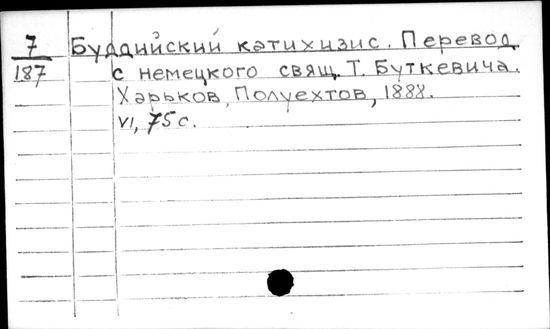 7 Буддийский катихизис. Перевод
187 с немецкого свящ. Т. Буткевича.
Харьков, Полуехтов, 1888.
VI, 75 с.